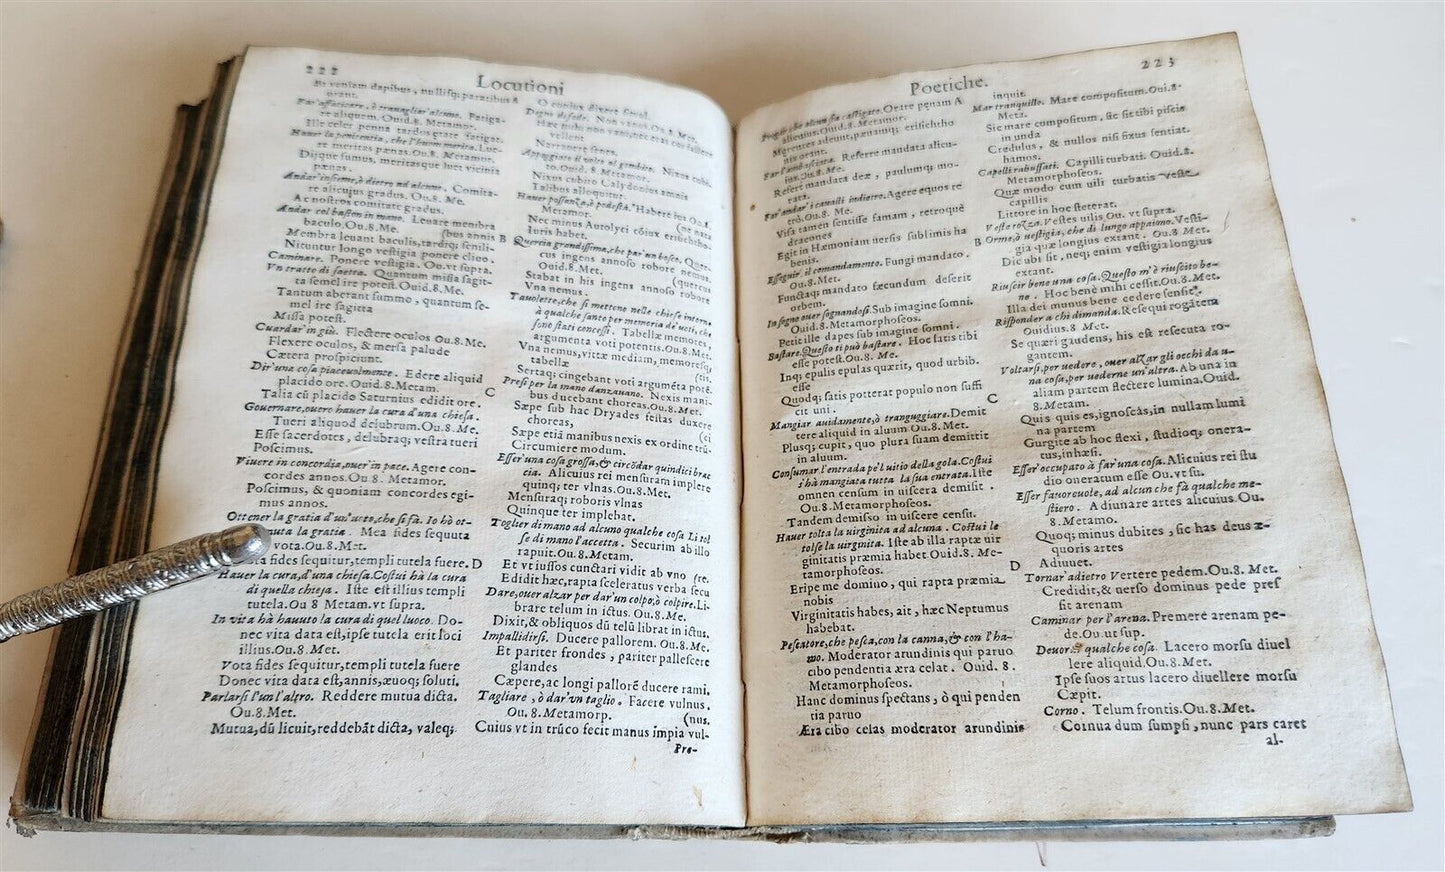 222
Locutioni
Et veniam dapibus, nullisq; paratibus
orant.
Far'affaticare, ò trauagliar'alcuno. Fatiga-
re aliquem. Ouid. 8. Metamor.
Ille celer penna tardos grate fatigat.
Hauer la penitenza, che l'huom merita. Lue-
re meritas pœnas. Ou. 8. Metamor.
Dijque sumus, meritasque luet vicinia
pœnas.
Andar'insieme, ò dietro ad alcuno. Comita-
re alicujus gradus. Ou. 8. Me.
Ac nostros comitate gradus.
Andar col baston in mano. Leuare membra
baculo. Ou. 8. Me. (bus annis
Membra leuant baculis, tardiq; senili-
Nituntur longo vestigia ponere cliuo.
Caminare. Ponere vestigia. Ou. vt supra.
Vn tratto di saetta. Quantum missa sagit-
ta semel ire potest. Ouid. 8. Met.
Tantum aberant summo, quantum se-
mel ire sagitta
Missa potest.
Guardar'in giù. Flectere oculos Ou. 8. Me.
Flexere oculos, & mersa palude
Cætera prospiciunt.
Dir'una cosa piaceuolmente. Edere aliquid
placido ore. Ouid. 8. Metam.
Talia cū placido Saturnius edidit ore.
Gouernare, ouero hauer la cura d'una chiesa.
Tueri aliquod delubrum. Ou. 8. Me.
Esse sacerdotes, delubraq; vestra tueri
Poscimus.
Viuere in concordia, ouer in pace. Agere con-
cordes annos. Ou 8. Metamor.
Poscimus, & quoniam concordes egi-
mus annos.
Ottener la gratia d'un'uoto, che si fà. Io hò ot-
nuta la gratia. Mea fides sequuta
vota. Ou. 8. Met.
fides sequitur, templi tutela fuere.
Hauer la cura, d'una chiesa. Costui hà la cura
di quella chiesa. Iste est illius templi
tutela. Ou 8 Metam. vt supra.
In vita hà hauuto la cura di quel luoco. Do-
nec vita data est, ipse tutela erit loci
illius. Ou. 8. Met.
Vota fides sequitur, templi tutela fuere
Donec vita data est, annis, æuoq; soluti.
Parlarsi l'un l'altro. Reddere mutua dicta.
Ou. 8. Met.
Mutua, dū licuit, reddebāt dicta, valeq;
B
C
D
O coniux dixere simul.
Degno di fede. Non vanus. Ou. 8. Met.
Hæc mihi non vani, neq; erat cur fallere
vellent
Narrauere senes.
Appoggiato di volto al gombito. Nixus cubi-
to. Ouid. 8. Metamor.
Nixus cubito Calydonius amnis
Talibus alloquitur.
Hauer possanza, ò podestà. Habere ius. Ou. 8.
Metamor. (ne nax
Nec minus Autolyci cōiux erisichtho-
Iuris habet.
Quercia grandissima, che par'un bosco. Quer-
cus ingens annoso robore nemus.
Ouid. 8. Met. (quercus
Stabat in his ingens annoso robore
Vna nemus.
Tauolette, che si metteno nelle chiese intorno
à qualche santo per memoria de'uoti, che
sono stati concessi. Tabellæ memores,
argumenta voti potentis. Ou. 8. Met.
Vna nemus, vittæ mediam, memoresq;
tabellæ (tis.
Sertaq; cingebant voti argumēta potē-
Presi per la mano danzauano. Nexis mani-
bus ducebant choreas. Ou. 8. Met.
Sæpe sub hac Dryades festas duxere
choreas, (ci
Sæpe etiā manibus nexis ex ordine trū-
Circumiere modum.
Esser'una cosa grossa, & circōdar quindici brac
cia. Alicuius rei mensuram implere
quinq; ter vlnas. Ou. 8. Met.
Mensuraq; roboris vlnas
Quinque ter implebat.
Toglier di mano ad alcuno qualche cosa Li tol
se di mano l'accetta. Securim ab illo
rapuit. Ou. 8. Metam.
Et vt iussos cunctari vidit ab vno (re.
Edidit hæc, rapta sceleratus verba secu
Dare, ouer alzar per dar'un colpo, ò colpire. Li-
brare telum in ictus. Ou. 8. Me.
Dixit, & obliquos dū telū librat in ictus.
Impallidirsi. Ducere pallorem. Ou. 8. Me.
Et pariter frondes, pariter pallescere
glandes
Cæpere, ac longi pallorē ducere rami.
Tagliare, ò dar'vn taglio. Facere vulnus.
Ou. 8. Metamorp. (nus.
Cuius vt in trūco fecit manus impia vul-
Pre-
Poetiche.
223
Prego, che alcun sia castigato. Orare pœnam
alicuius. Ouid. 8. Metamor.
Mœrentes adeunt, pœnamq; erisichtho
nis orant.
Far l'ambasciata. Referre mandata alicu-
ius. Ou. 8. Me.
Refert mandata deæ, paulumq; mo-
rata.
Far'andar'i caualli indietro. Agere equos re
trò. Ou. 8. Me.
Visa tamen sentisse famam, retroquè
dracones
Egit in Hæmoniam uersis sublimis ha
benis.
Esseguir. il comandamento. Fungi mandato.
Ou. 8. Met.
Functaq; mandato fæcundum deserit
orbem.
In sogno ouer sognandosi. Sub imagine somni.
Ouid. 8. Metamorphoseos.
Petit ille dapes sub imagine somni.
Bastare. Questo ti può bastare. Hoc satis tibi
esse potest. Ou. 8. Me.
Inq; epulis epulas quærit, quod urbib.
esse
Quodq; satis potterat populo non suffi
cit uni.
Mangiar auidamente, ò tranguggiare. Demit
tere aliquid in aluum Ou. 8. Me.
Plusq; cupit, quo plura suam demittit
in aluum.
Consumar l'entrada pe'l uitio della gola. Costui
s'hà mangiata tutta la sua entrata. Iste
omnen censum in uiscera demisit.
Ou. 8. Metamorphoseos.
Tandem demisso in uiscere censu.
Hauer tolta la uirginita ad alcuna. Costui le
tolse la uirginita. Iste ab illa raptæ uir
ginitatis præmia habet Ouid. 8. Me-
tamorphoseos.
Eripe me domino, qui rapta præmia
nobis
Virginitatis habes, ait, hæc Neptumus
habebat.
Pescatore, che pesca, con la canna, & con l'ha-
mo. Moderator arundinis qui paruo
cibo pendentia æra celat. Ouid. 8.
Metamorphoseos.
Hanc dominus spectans, ò qui penden
tia paruo
Æra cibo celas moderator arundinis
A
B
C
D
inquit.
Mar tranquillo. Mare compositum. Oui. 8.
Meta.
Sic mare compositum, & sit tibi piscis
in unda
Credulus, & nullos nisi fixus sentiat.
hamos.
Capelli rabuffati. Capilli turbati. Ouid. 8.
Metamorphoseos.
Quæ modo cum uili turbatis veste
capillis
Littore in hoc steterat.
Veste rozza. Vestes uilis Ou. vt supra.
Orme, ò uestigia, che di lungo appaiono. Vesti-
gia quæ longius extant. Ou. 8. Met.
Dic ubi sit, neq; enim vestigia longius
extant.
Riuscir bene una cosa. Questo m'è riuscito be-
ne. Hoc benè mihi cessit. Ou. 8. Met.
Illa dei munus bene cedere sensit.
Risponder a chi dimanda. Resequi rogātem
Ouidius. 8 Met.
Se quæri gaudens, his est resecuta ro-
gantem.
Voltarsi, per uedere, ouer alzar gli occhi da u-
na cosa, per uederne un'altra. Ab una in
aliam partem flectere lumina. Ouid.
8. Metam.
Quis quis es, ignoscas, in nullam lumi
na partem
Gurgite ab hoc flexi, studioq; opera-
tus, inhæsi.
Esser'occupato à far'una cosa. Alicuius rei stu
dio oneratum esse. Ou. vt su.
Esser fauoreuole, ad alcun che fà qualche me-
stiero. Adiunare artes alicuius. Ou.
8. Metamo.
Quoq; minus dubites, sic has deus æ-
quoris artes
Adiuuet.
Tornar'adietro Vertere pedem. Ou. 8. Met.
Credidit, & uerso dominus pede pres
sit arenam
Caminar per l'arena. Premere arenam pe-
de. Ou. ut sup.
Deuorar qualche cosa. Lacero morsu diuel
lere aliquid. Ou. 8. Met.
Ipse suos artus lacero diuellere morsu
Cæpit.
Corno. Telum frontis. Ou. 8. Met.
Cornua dum sumpsi, nunc pars caret
al-